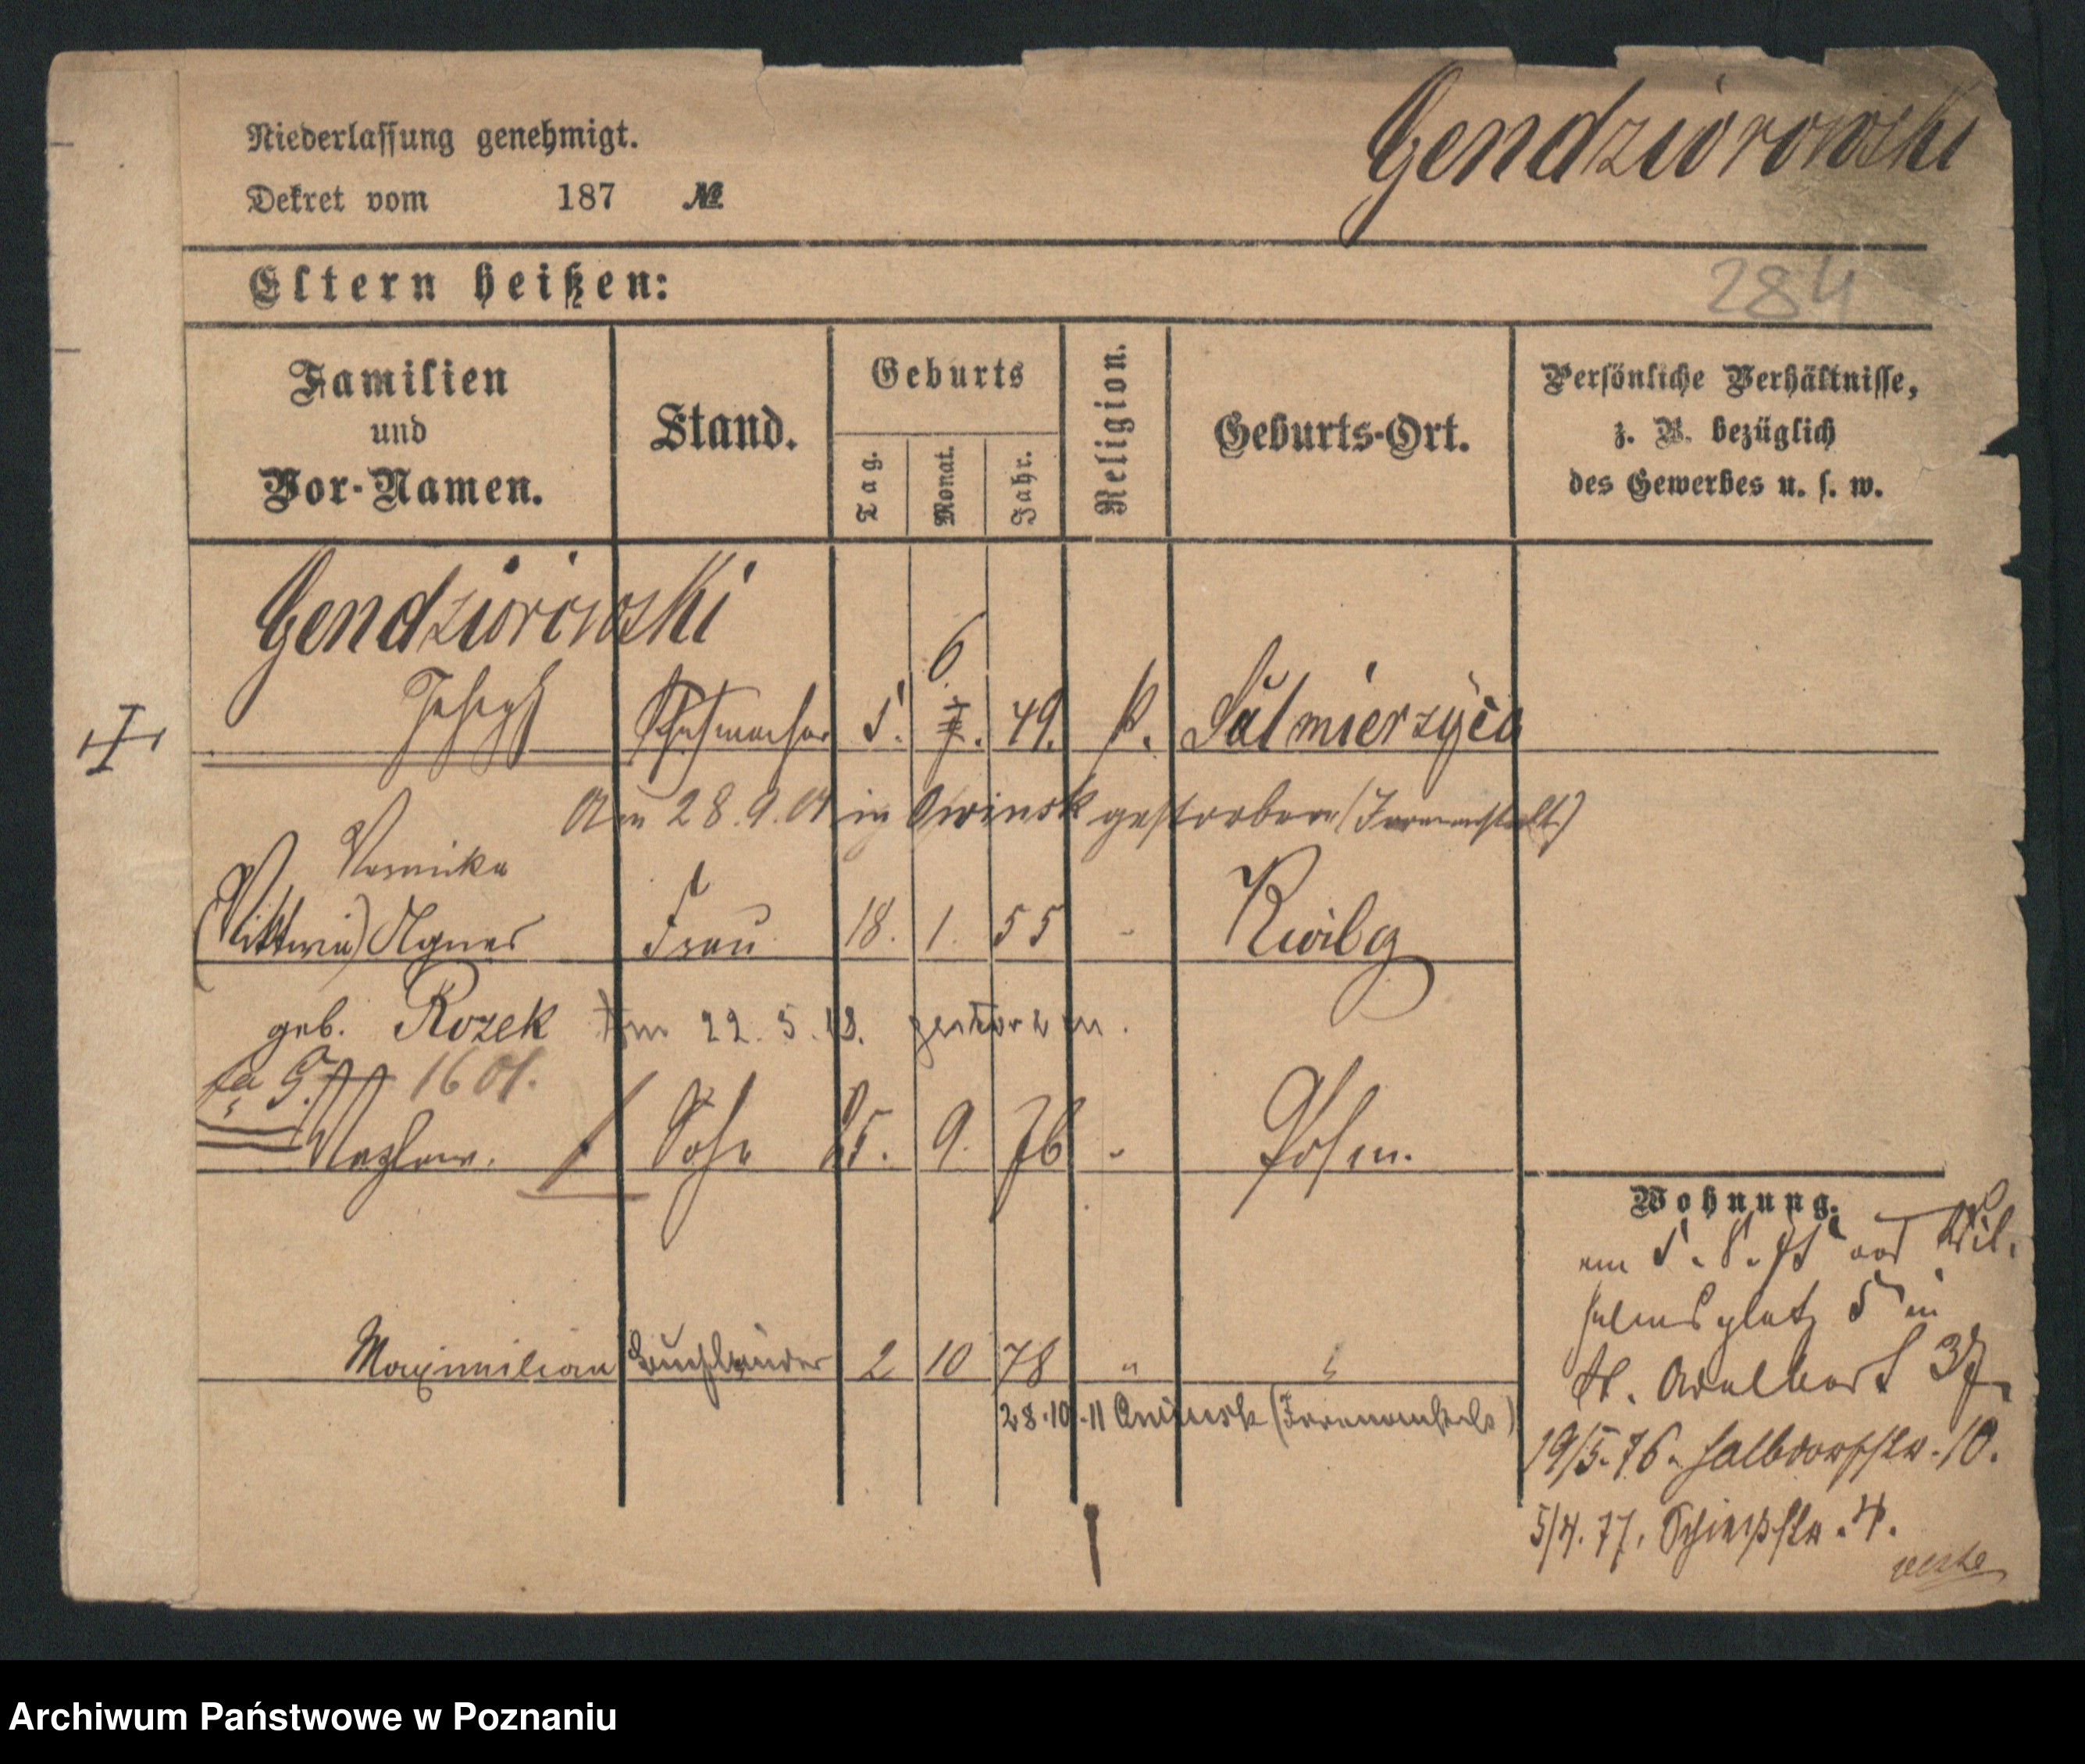 Niederlassung genehmigt.
Gendziorowski
Dekret vom 187 №
Eltern heißen:
284
Familien und Vor-Namen.
Stand.
Geburts
Tag.
Monat.
Jahr.
Religion.
Geburts-Ort.
Persönliche Verhältnisse,
z. B. bezüglich
des Gewerbes u. s. w.
Gendziorowski
6
Joseph Schuhmacher 5. 7. 49. k. Sulmierzyce
Am 28.9.01 in Owinsk gestorben (Irrenanstalt)
Veronika
(Viktoria) Agnes Frau 18. 1. 55 " Kwilcz
geb. Rozek Am 22.5.18. gestorben.
1601.
Sohn 25. 9. 76 " Posen.
Wohnung.
am 5.8.75 von Wil-
helmsplatz 5 in
St. Adalbert 37.
Maximilian Buchbinder 2 10 78 " "
28.10.11 Owinsk (Irrenanstalt)
19/5.76. Halbdorfstr. 10.
5/4.77. Schießstr. 4.
verte
Archiwum Państwowe w Poznaniu